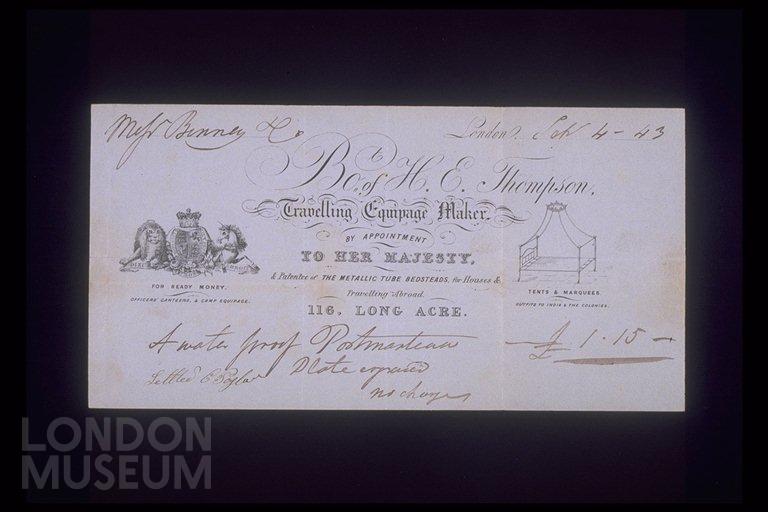 Messrs Binney & Co
London, Feby 4 - 43
Bot. of H. E. Thompson,
Travelling Equipage Maker.
BY APPOINTMENT
TO HER MAJESTY,
& Patentee of THE METALLIC TUBE BEDSTEADS, for Houses &
Travelling Abroad.
116, LONG ACRE.
FOR READY MONEY.
OFFICERS' CANTEENS, & CAMP EQUIPAGE.
TENTS & MARQUEES.
OUTFITS TO INDIA & THE COLONIES.
A water proof Portmanteau £ 1 . 15 -
Plate engraved
Settled
no charge
LONDON
MUSEUM